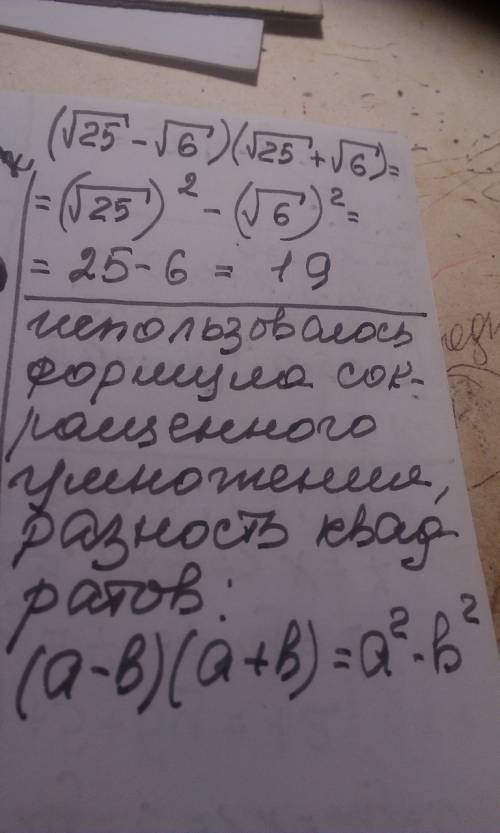 (√25 - √6)(√25 + √6) =
= (√25)² - (√6)² =
= 25 - 6 = 19
использовалось
формула сок-
ращенного
умножения,
разность квад
ратов:
(a - b)(a + b) = a² - b²